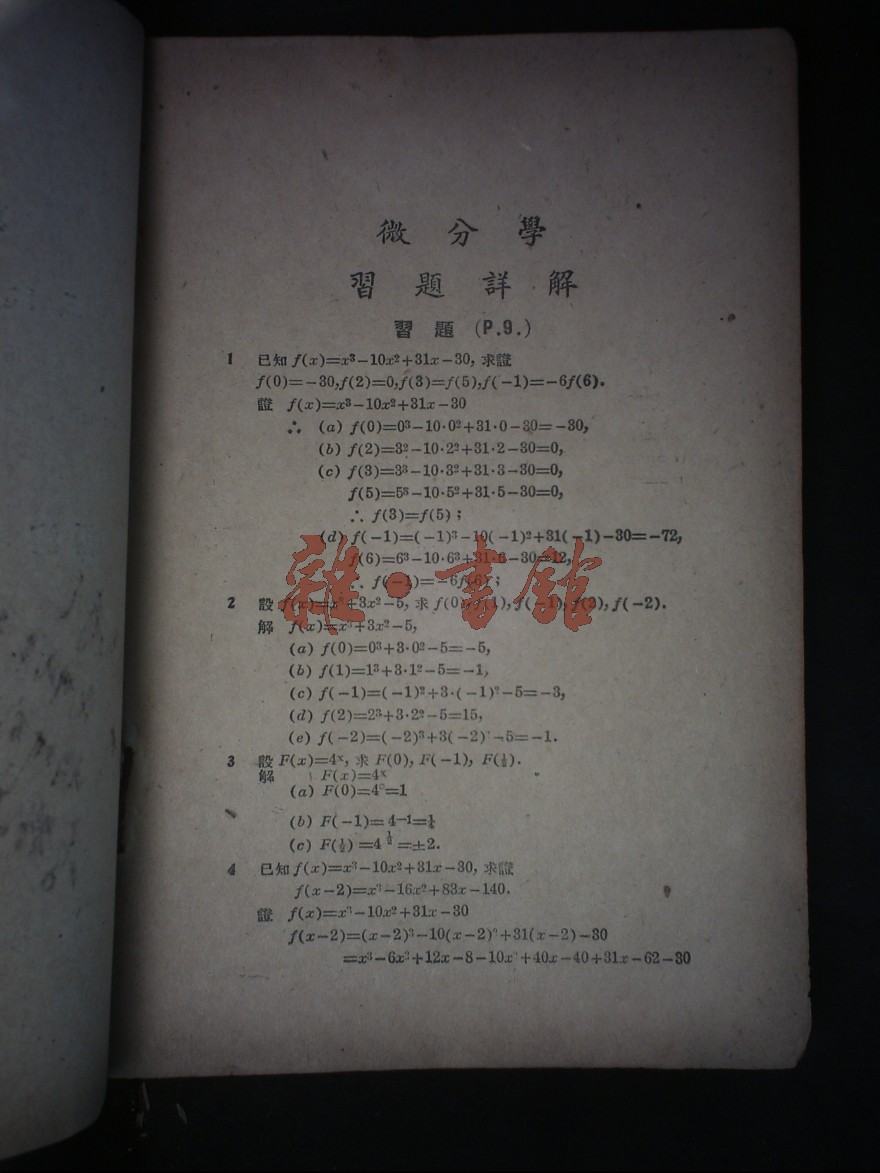 微分學
習題詳解
習題 (P.9.)
1 已知 f(x)=x³−10x²+31x−30, 求證
f(0)=−30,f(2)=0,f(3)=f(5),f(−1)=−6f(6).
證 f(x)=x³−10x²+31x−30
∴ (a) f(0)=0³−10·0²+31·0−30=−30,
(b) f(2)=3²−10·2²+31·2−30=0,
(c) f(3)=3³−10·3²+31·3−30=0,
f(5)=5³−10·5²+31·5−30=0,
∴ f(3)=f(5);
(d) f(−1)=(−1)³−10(−1)²+31(−1)−30=−72,
f(6)=6³−10·6³+31·6−30=12,
∴ f(−1)=−6f(6);
雜·書館
2 設 f(x)=x³+3x²−5, 求 f(0),f(1),f(−1),f(2),f(−2).
解 f(x)=x³+3x²−5,
(a) f(0)=0³+3·0²−5=−5,
(b) f(1)=1³+3·1²−5=−1,
(c) f(−1)=(−1)³+3·(−1)²−5=−3,
(d) f(2)=2³+3·2²−5=15,
(e) f(−2)=(−2)³+3(−2)²−5=−1.
3 設 F(x)=4ˣ, 求 F(0), F(−1), F(½).
解 F(x)=4ˣ
(a) F(0)=4⁰=1
(b) F(−1)=4⁻¹=¼
(c) F(½)=4^½=±2.
4 已知 f(x)=x³−10x²+31x−30, 求證
f(x−2)=x³−16x²+83x−140.
證 f(x)=x³−10x²+31x−30
f(x−2)=(x−2)³−10(x−2)²+31(x−2)−30
=x³−6x²+12x−8−10x²+40x−40+31x−62−30